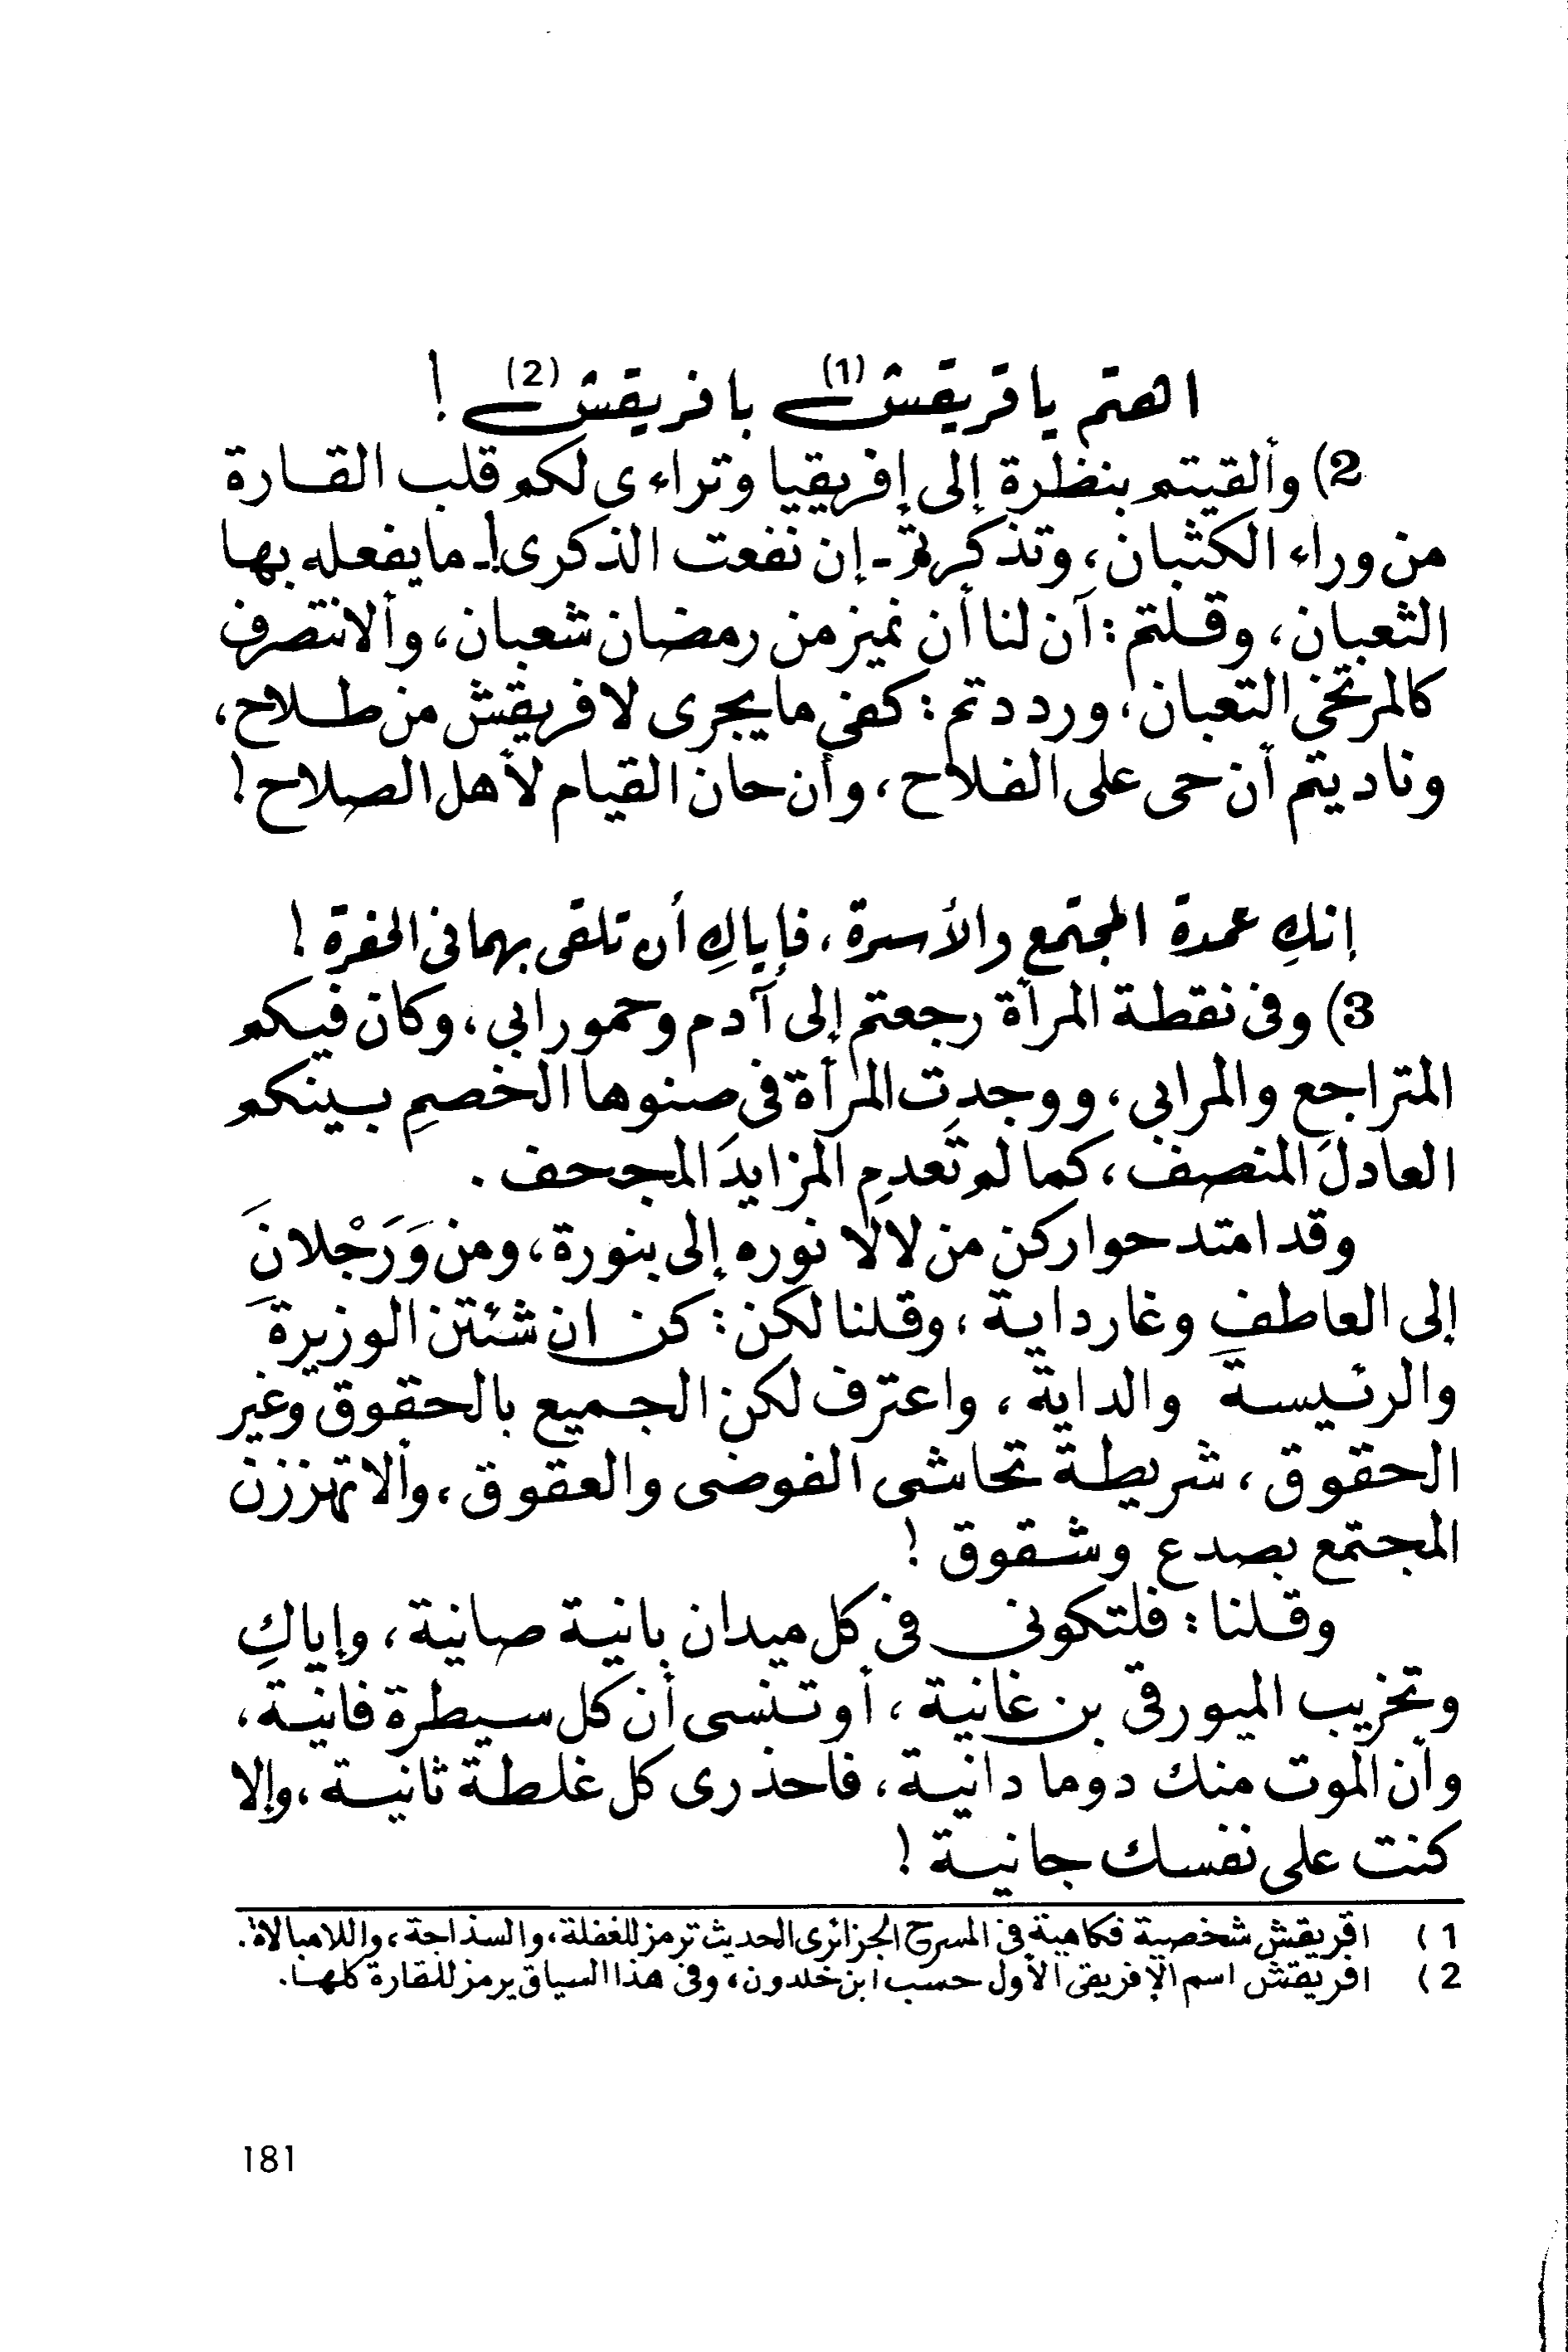 اهتم يا قريقش (1) بافريقش (2) !
2) وألقيتم بنظرة إلى إفريقيا وتراءى لكم قلب القارة
من وراء الكثبان، وتذكرتم - إن نفعت الذكرى! - ما يفعله بها
الثعبان، وقلتم : آن لنا أن نميز من رمضان شعبان، وألا نتصرف
كالمرتخي التعبان، ورددتم : كفى ما يجرى لافريقش من طلاح،
وناديتم أن حى على الفلاح، وأن حان القيام لأهل الصلاح !
إنكِ عمدة المجتمع والأسرة، فإياكِ أن تلقى بهما فى الحفرة !
3) وفى نقطة المرأة رجعتم إلى آدم وحمورابي، وكان فيكم
المتراجع والمرابي، ووجدت المرأة فى صنوها الخصمِ بينكم
العادلَ المنصف، كما لم تَعدمِ المزايدَ المجحف .
وقد امتد حواركن من لالا نوره إلى بنورة، ومن وَرَجْلانَ
إلى العاطف وغارداية، وقلنا لكن : كن ان شئتن الوزيرةَ
والرئيسةَ والدايةَ، واعترف لكن الجميع بالحقوق وغير
الحقوق، شريطة تحاشى الفوضى والعقوق، وألا تهززن
المجتمع بصدع وشقوق !
وقلنا : فلتكوني فى كل ميدان بانية صانية، وإياكِ
وتخريب الميورقي بن غانية، أو تنسى أن كل سيطرة فانية،
وأن الموت منك دوما دانية، فاحذرى كل غلطة ثانية، وإلا
كنت على نفسك جانية !
1 ) اقريقش شخصية فكاهية فى المسرح الجزائرى الحديث ترمز للغفلة، والسذاجة، واللامبالاة.
2 ) افريقش اسم الإفريقى الأول حسب ابن خلدون، وفى هذا السياق يرمز للقارة كلها.
181